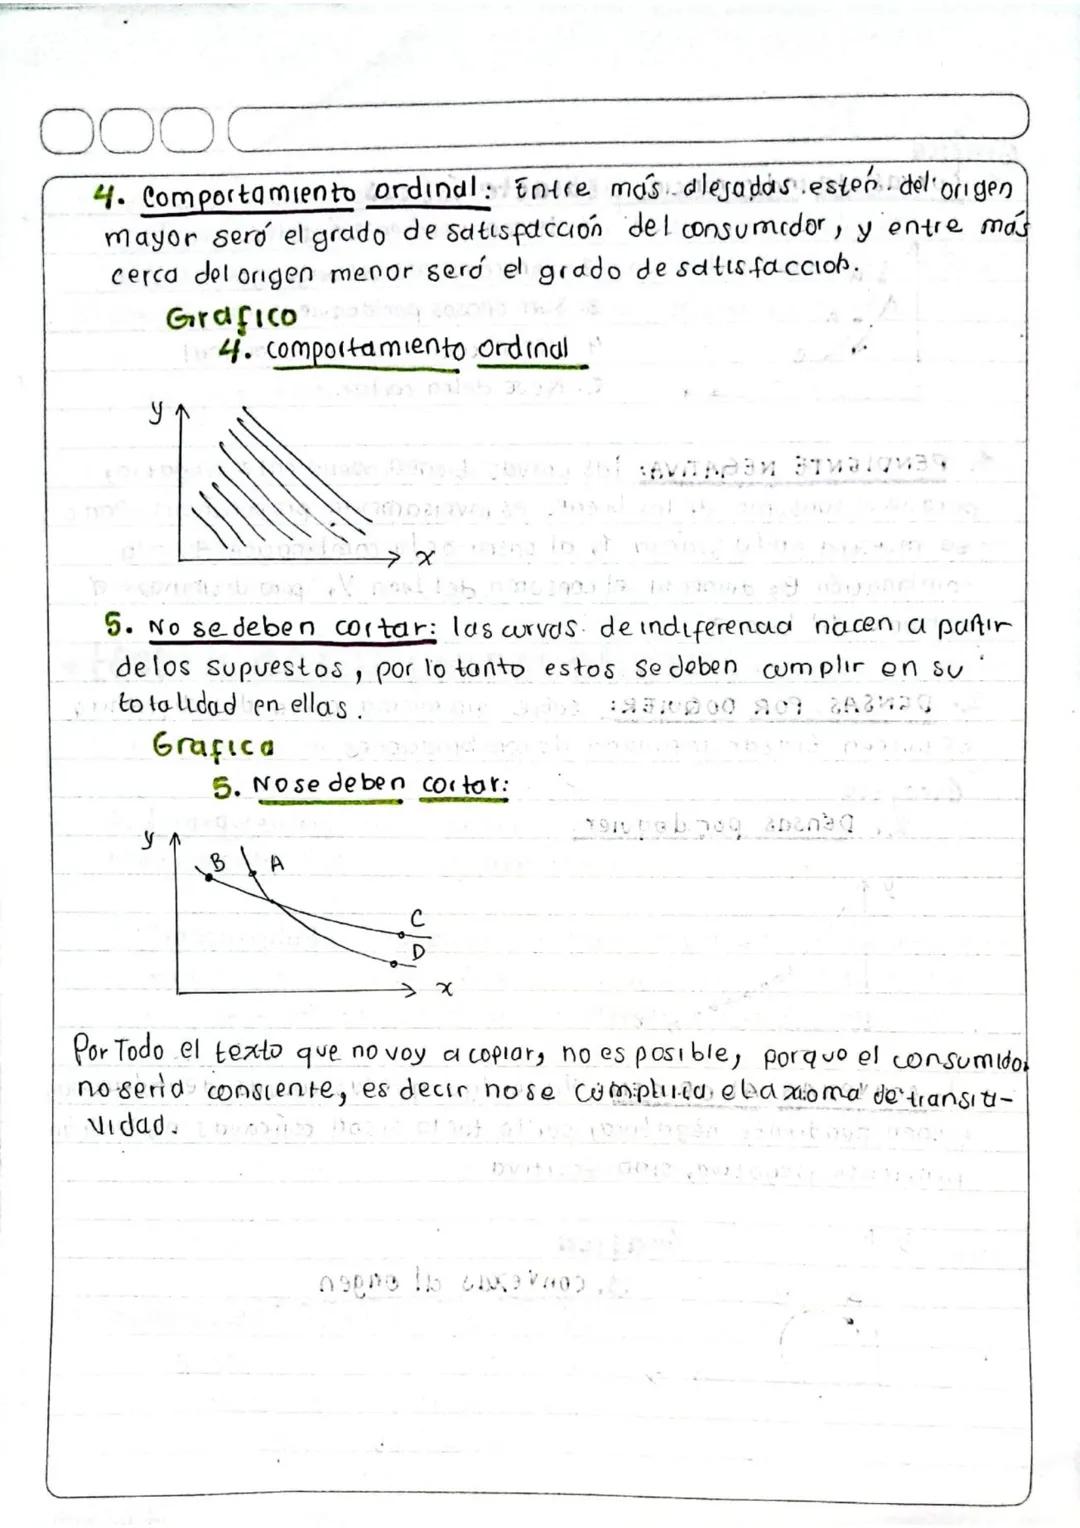 4. Comportamiento ordinal: Entre más alejadas esten del origen
mayor será el grado de satisfacción del consumidor, y entre más
cerca del origen menor será el grado de satisfacción.
Grafico
4. comportamiento ordinal
y
x
5. No se deben cortar: las curvas de indiferencia nacen a partir
de los supuestos, por lo tanto estos se deben cumplir en su
totalidad en ellas.
Grafica
5. No se deben cortar:
y
B A
C
D
x
Por Todo el texto que no voy a copiar, no es posible, porque el consumidor
no seria consiente, es decir no se cumpliria el axioma de transiti-
vidad.